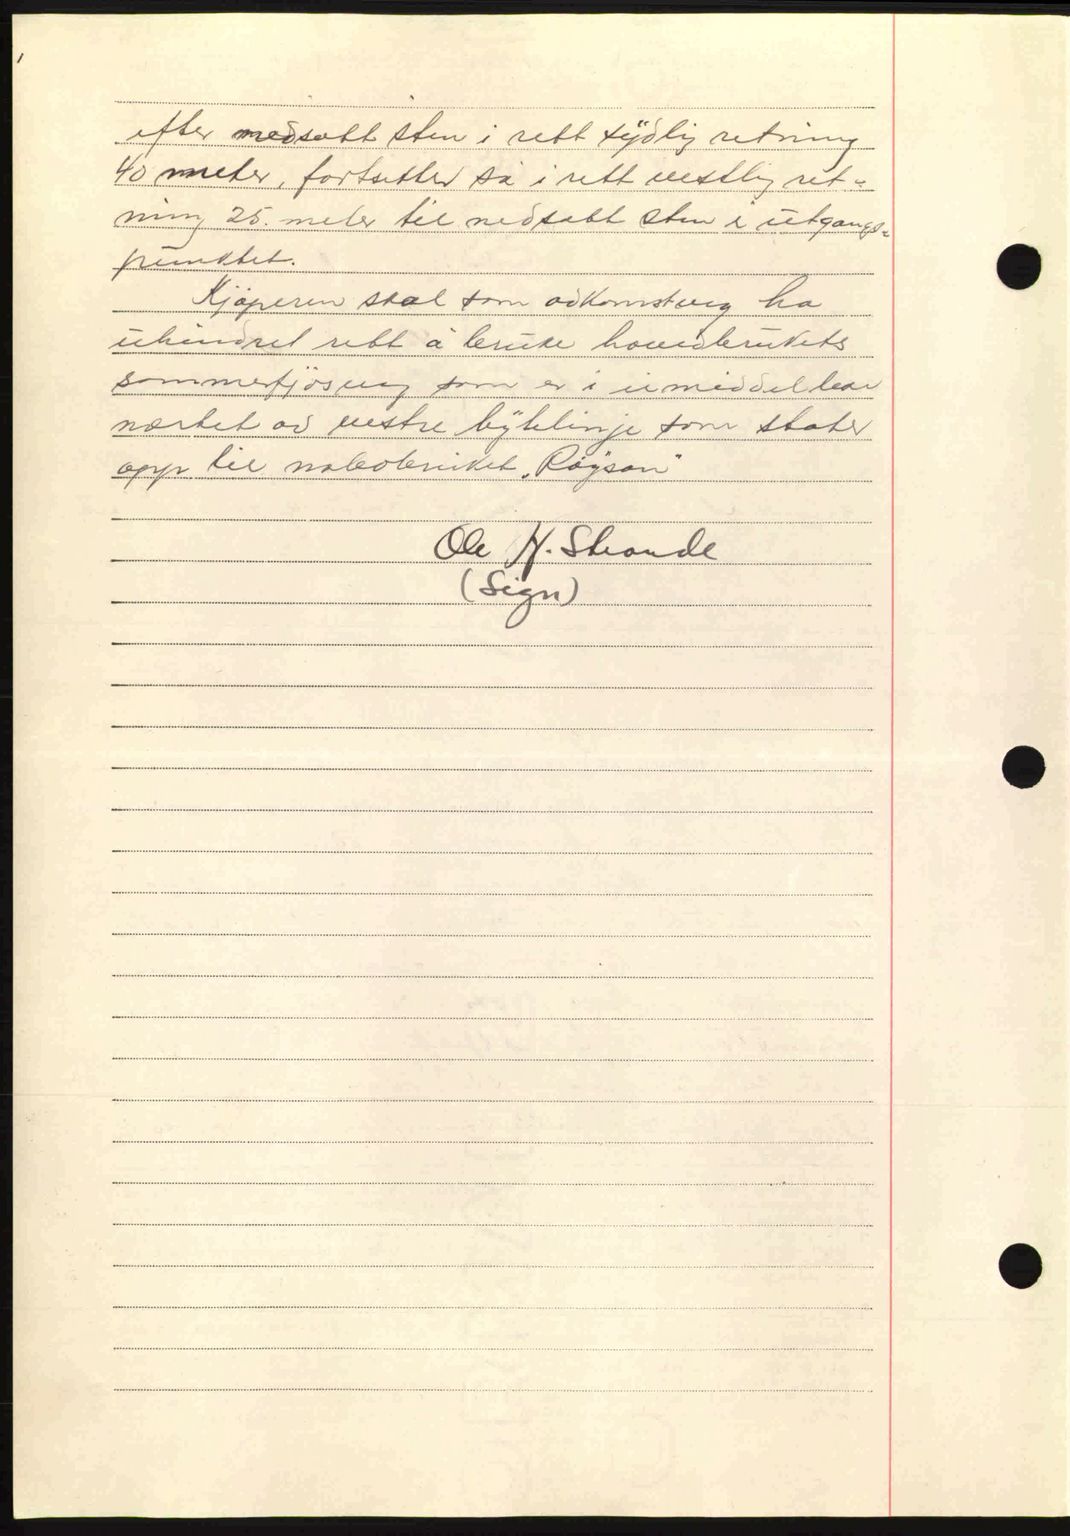 efter nedsatt sten i rett sydlig retning
40 meter, fortsetter så i rett vestlig ret-
ning 25. meter til nedsatt sten i utgangs-
punktet.
Kjøperen skal som adkomstveg ha
uhindret rett å bruke hovedbrukets
sommerfjøsveg som er i umiddelbar
nærhet av vestre bytelinje som støter
opp til nabobruket „Røysan"
Ole N. Strande
(Sign)